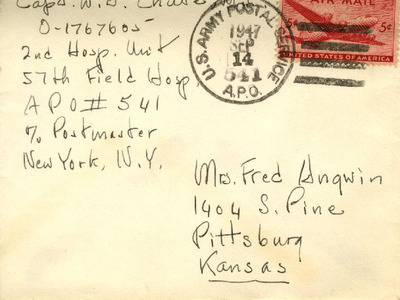 Capt. W. D.
O-1767605
2nd Hosp. Unit
57th Field Hosp.
A P O # 541
% Postmaster
New York, N.Y.
U.S. ARMY POSTAL SERVICE
1947
SEP
14
541
A.P.O.
AIR MAIL
5¢ 5¢
UNITED STATES OF AMERICA
Mrs. Fred Angwin
1404 S. Pine
Pittsburg
Kansas